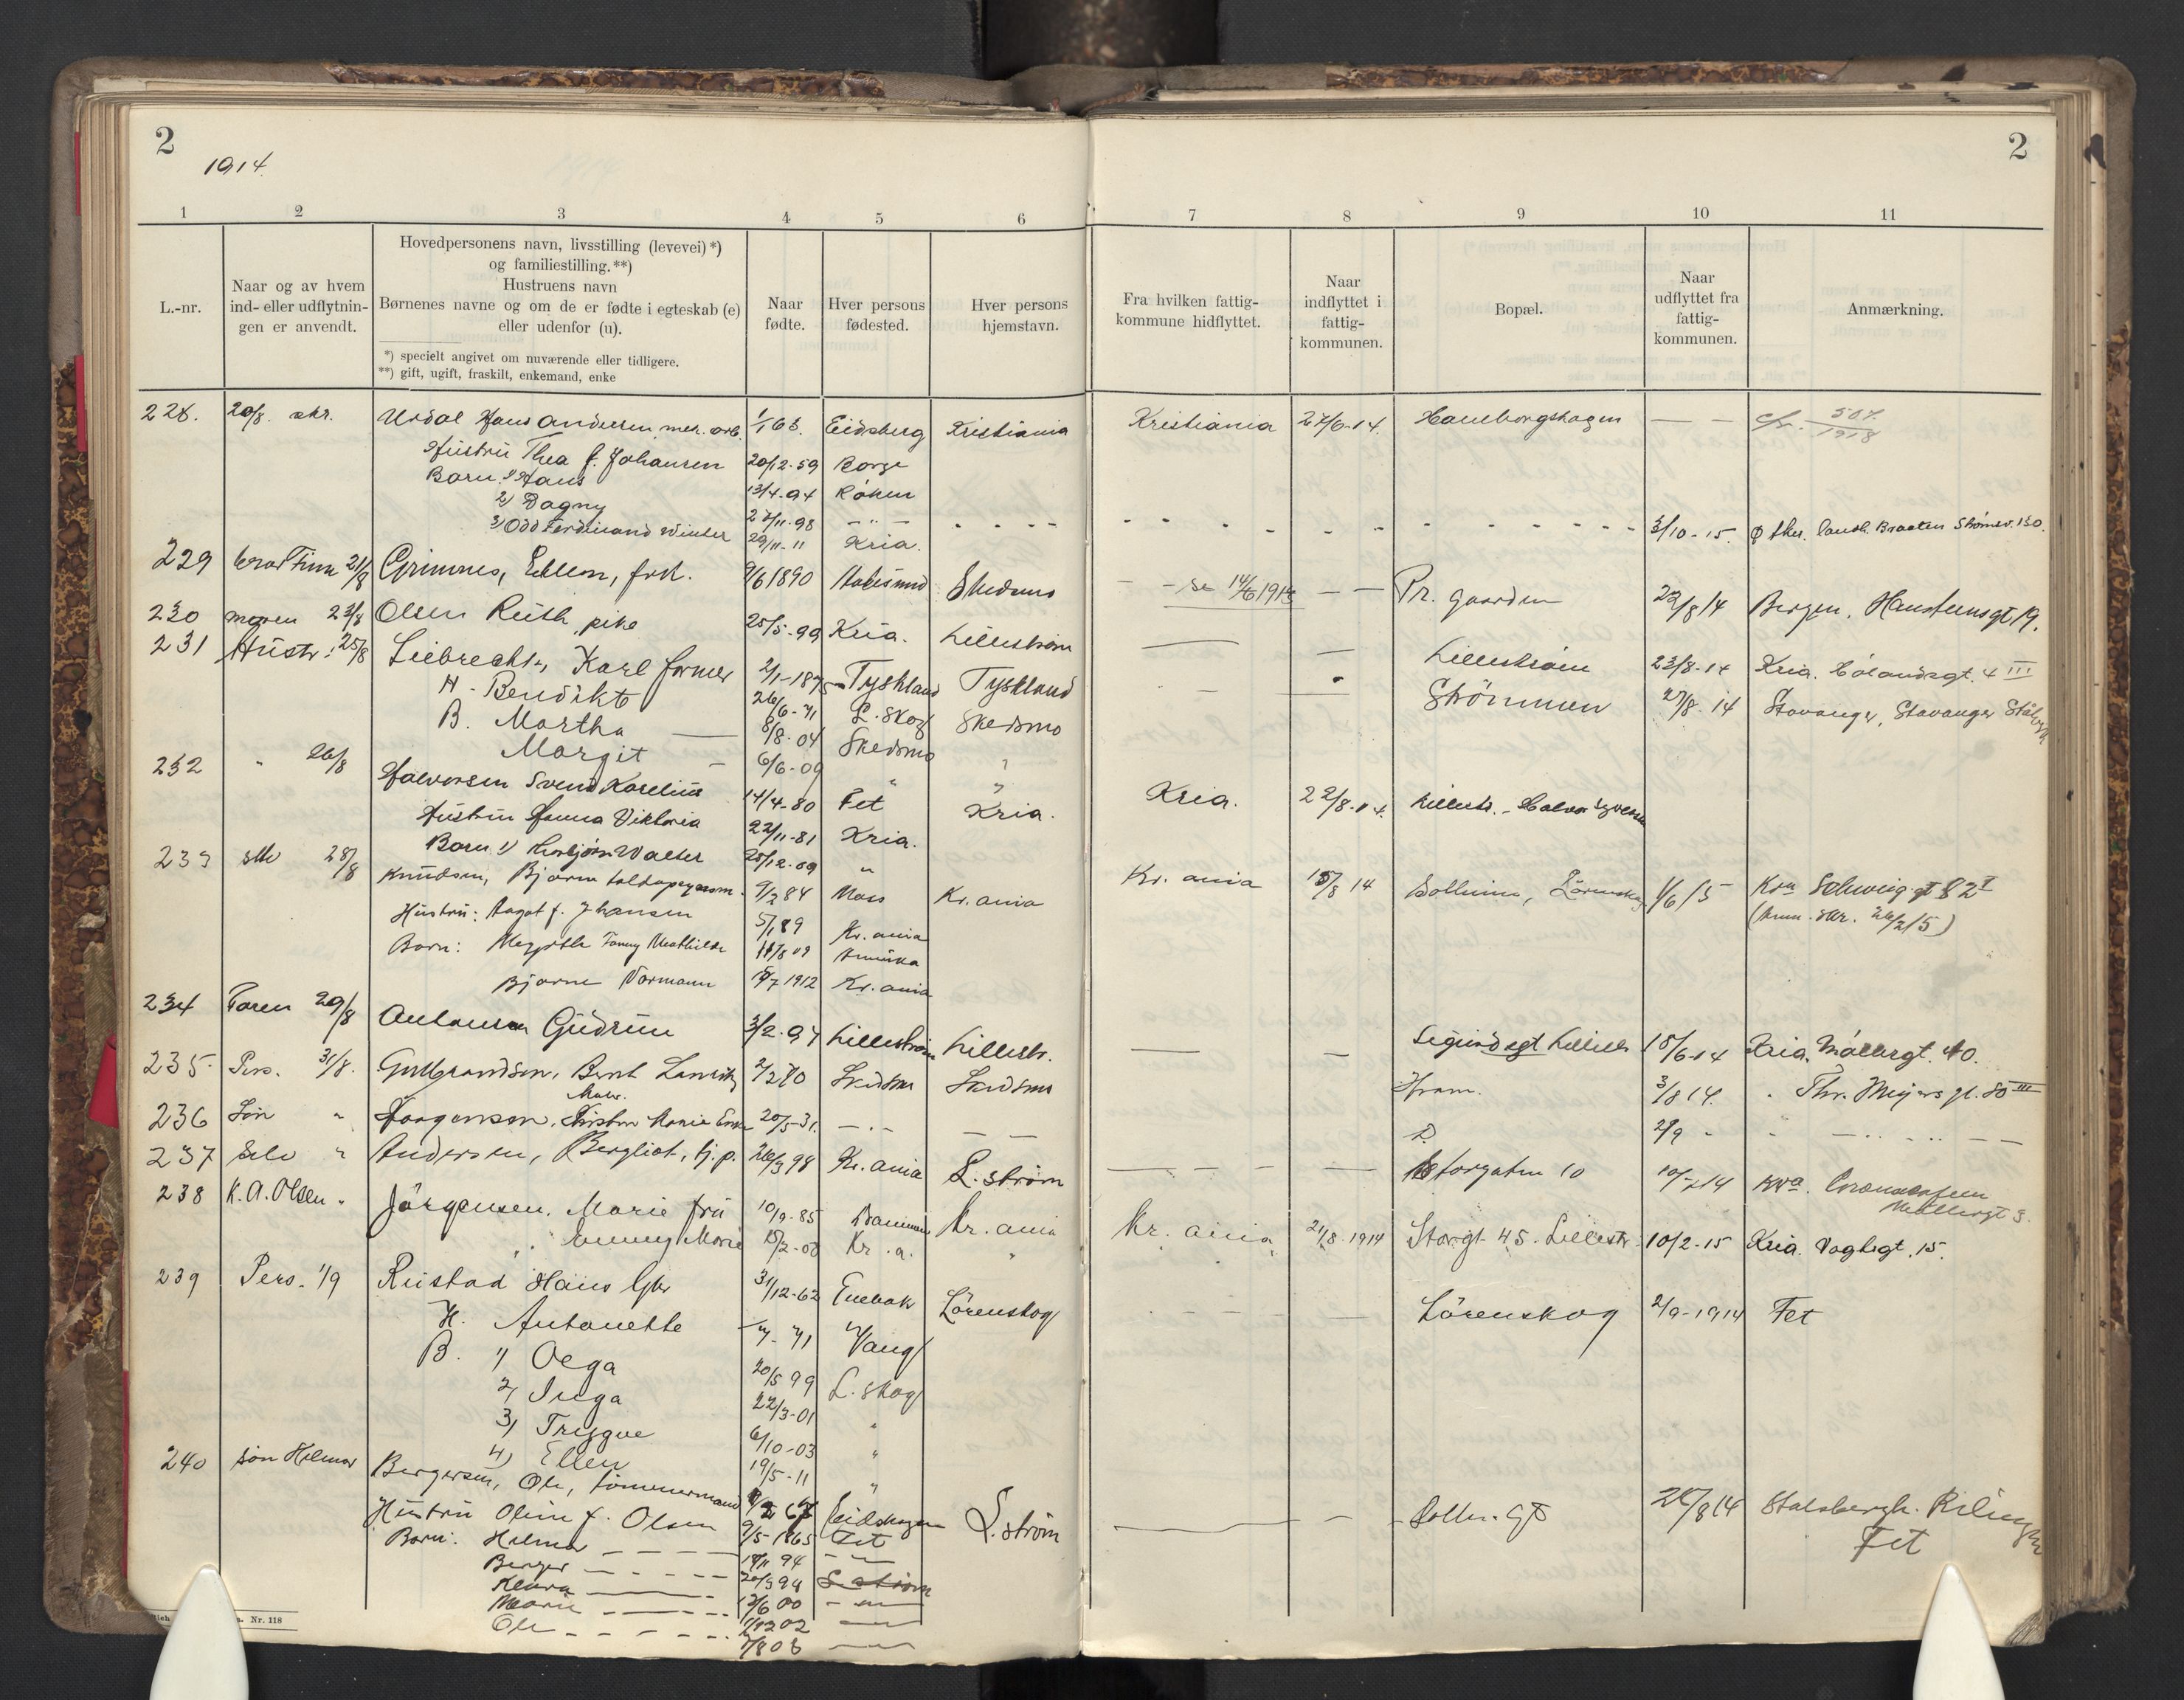 2
2
1914.
1 2 3 4 5 6 7 8 9 10 11
L.-nr.
Naar og av hvem
ind- eller udflytnin-
gen er anvendt.
Hovedpersonens navn, livsstilling (levevei) *)
og familiestilling. **)
Hustruens navn
Børnenes navne og om de er fødte i egteskab (e)
eller udenfor (u).
*) specielt angivet om nuværende eller tidligere.
**) gift, ugift, fraskilt, enkemand, enke
Naar
fødte.
Hver persons
fødested.
Hver persons
hjemstavn.
Fra hvilken fattig-
kommune hidflyttet.
Naar
indflyttet i
fattig-
kommunen.
Bopæl.
Naar
udflyttet fra
fattig-
kommunen.
Anmærkning.
228. 20/8. skr. Urdal Hans Andersen, mek. arb. 1/1 63. Eidsberg Kristiania Kristiania 27/6-14. Haneborghagen — — cfr. 507/1918
Hustru Thea f. Johansen 20/12-59 Borge
Barn 1) Hans 13/4-94 Røken
2) Dagny 27/11-98 - " -
3) Odd Ferdinand Winter 29/11-11 Kria. 3/10-15. Braaten Strømsv. 130.
229 21/8 Grimnes, Ellen, frk. 9/6 1890 Skedsmo - - se 14/6 1913 — — Pr. gaarden 22/8 14 Bergen, Hansteensgt 19.
230 moren 23/8 Olsen Ruth, pike 25/5-99 Kria. Lillestrøm — — Lillestrøm 23/8-14 Kria. Hólandsgt. 4 III
231 Hustr: 25/8 Liebrecht, Karl former 2/1-1875 Tyskland Tyskland Strömmen 27/8-14 Stavanger, Stavanger Stålverk
H - Bendikt 26/6-71 L. Skog Skedsmo
B. Martha — 8/8-04 Skedsmo "
Margit - 6/6-09 " "
232 " 26/8 Halvorsen Svend Karelius 14/4-80 Fet Kria. Kria. 22/8-14. Lillestr. - Halvor Syversen
Hustru Hanna Viktoria 22/11-81 Kria.
Barn 1) Thorbjørn Walter 25/12-09 "
233 selv 28/8 Knudsen, Bjarne toldopsynsm. 9/2 84 Moss Kr.ania Kr.ania 15/8 14 Solheim, Lørenskog 1/6 15 Kra Schweig.gt 82 I
Hustru: Aagot f. Johansen 5/1 89 Kr.ania (Anm. skr. 26/2 15)
Barn: Fanny Mathilde 11/8 09 Amerika
Bjarne Normann 15/7 1912 Kr.ania
234 Faren 29/8 Antonsen Gudrun 3/2-97 Lillestrøm Lillestr. — — Sigurdsgt Lillestr 15/6-14 Kria. Møllergt. 40.
235 Pers. 31/8. Gulbrandsen, Bernt Lauritz 2/2 70 Skedsmo Skedsmo Strøm. 3/8 14. " Thv. Meyers gt. 80 III
Maler.
236 Søn " Haagensen, Kirstine Marie Enke 20/5-31. — " — — — D. 2/9 - " — " — " — —
237 Selv " Andersen, Bergliot, tj.p. 26/3 98 Kr.ania L. strøm — — — — Storgaten 10 14 Kra.
Møllergt 3.
238 K. A. Olsen " Jørgensen, Marie fru 10/9-85 Kr.ania Kr.ania 21/8-1914 Storgt 45. Lillestr. 10/2-15 Kria. Vogtsgt. 15.
" Fanny Marie 15/2-08 Kr.a. "
239 Pers. 1/9 Rustad Hans Gbr 31/12-62 Enebak Lørenskog - - - - — Lørenskog 2/9-1914 Fet
H. Antonette — 71 Vang
B. 1) Olga 20/5 99 L. skog
2) Inga 22/3-01 "
3) Trygve 6/10-03 "
4) Ellen 19/5-11 "
240 søn Helmer Bergersen, Ole, tømmermand 67 Eidskogen L. strøm — — Solhm. Gt 26/8 14 Stalsbergh. Rælingen
Hustru Oline f. Olsen 9/5-1865 Fet Fet
Barn: Helmer — — — 14/11 94 - " -
Berger — - - - 20/3 98 L. strøm
Klara — — 12/6 00 - " -
Marie — - - 02 — " —
Ole - - - - - 7/8 08 — " —
Nr. 118